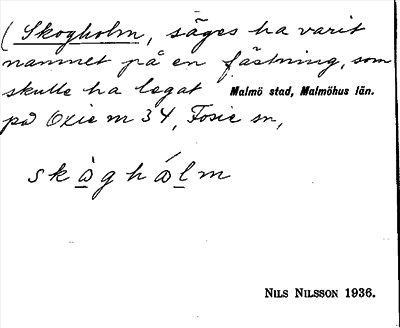 ( Skogholm, säges ha varit
namnet på en fästning, som
skulle ha legat Malmö stad, Malmöhus län.
på Oxie nr 34, Fosie sn,
skòghólm
NILS NILSSON 1936.